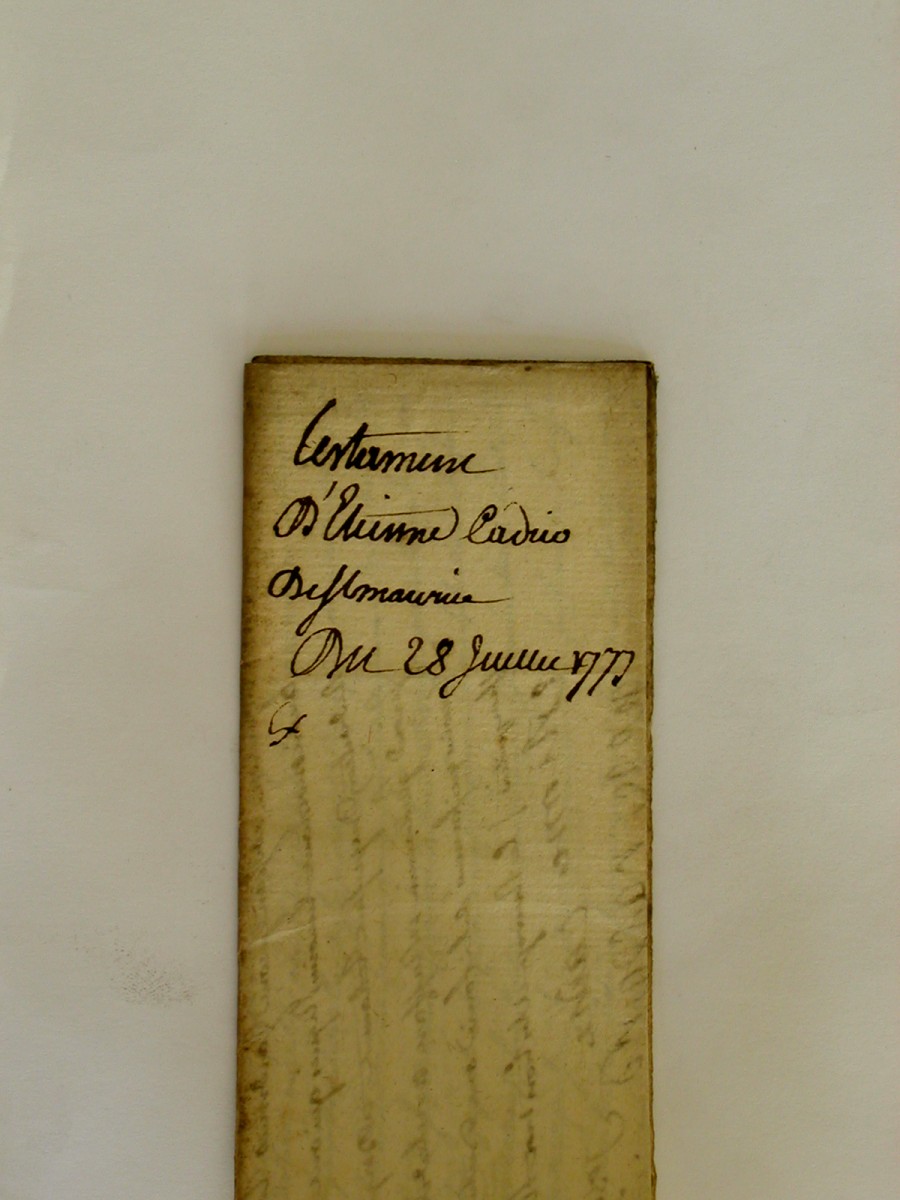 Testament
D'Etienne Cadrio
De St maurice
Du 28 Juillet 1777